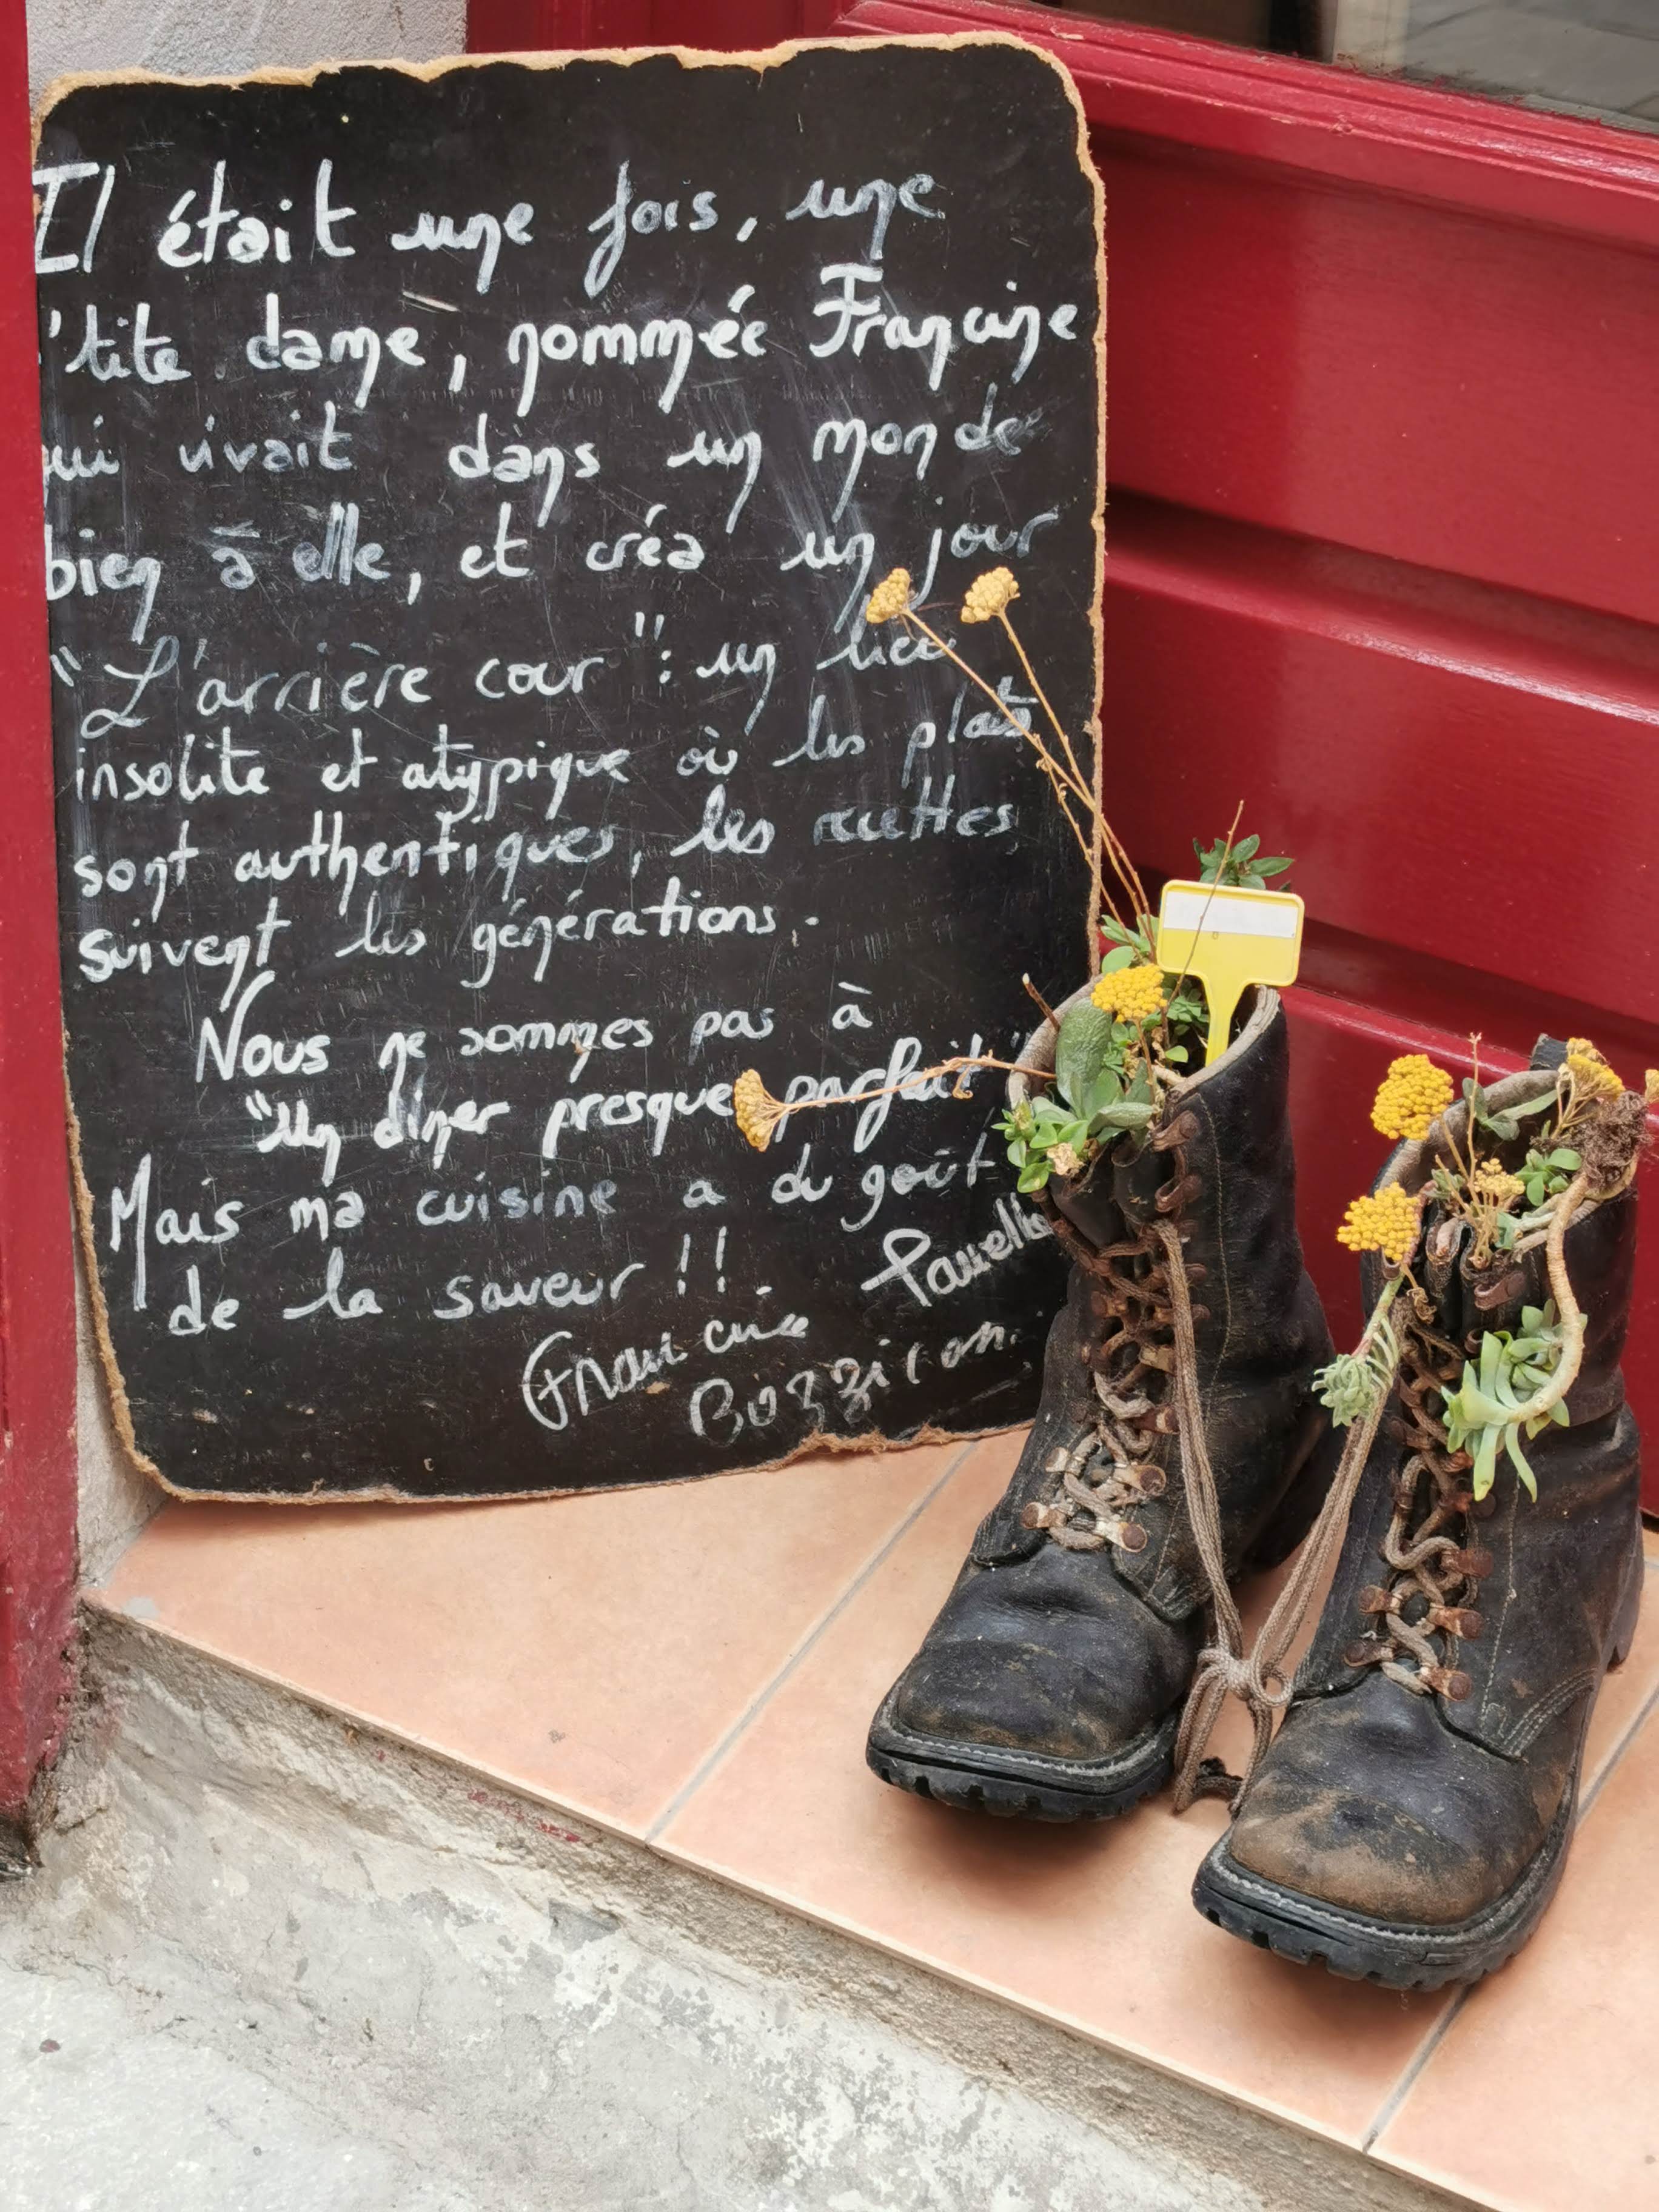 Il était une fois, une
'tite dame, nommée Francine
qui vivait dans un monde
bien à elle, et créa un jour
"L'arrière cour": un lieu
insolite et atypique où les plats
sont authentiques, les recettes
suivent les générations.
Nous ne sommes pas à
"Un dîner presque parfait"
Mais ma cuisine a du goût
de la saveur !!.
Francine